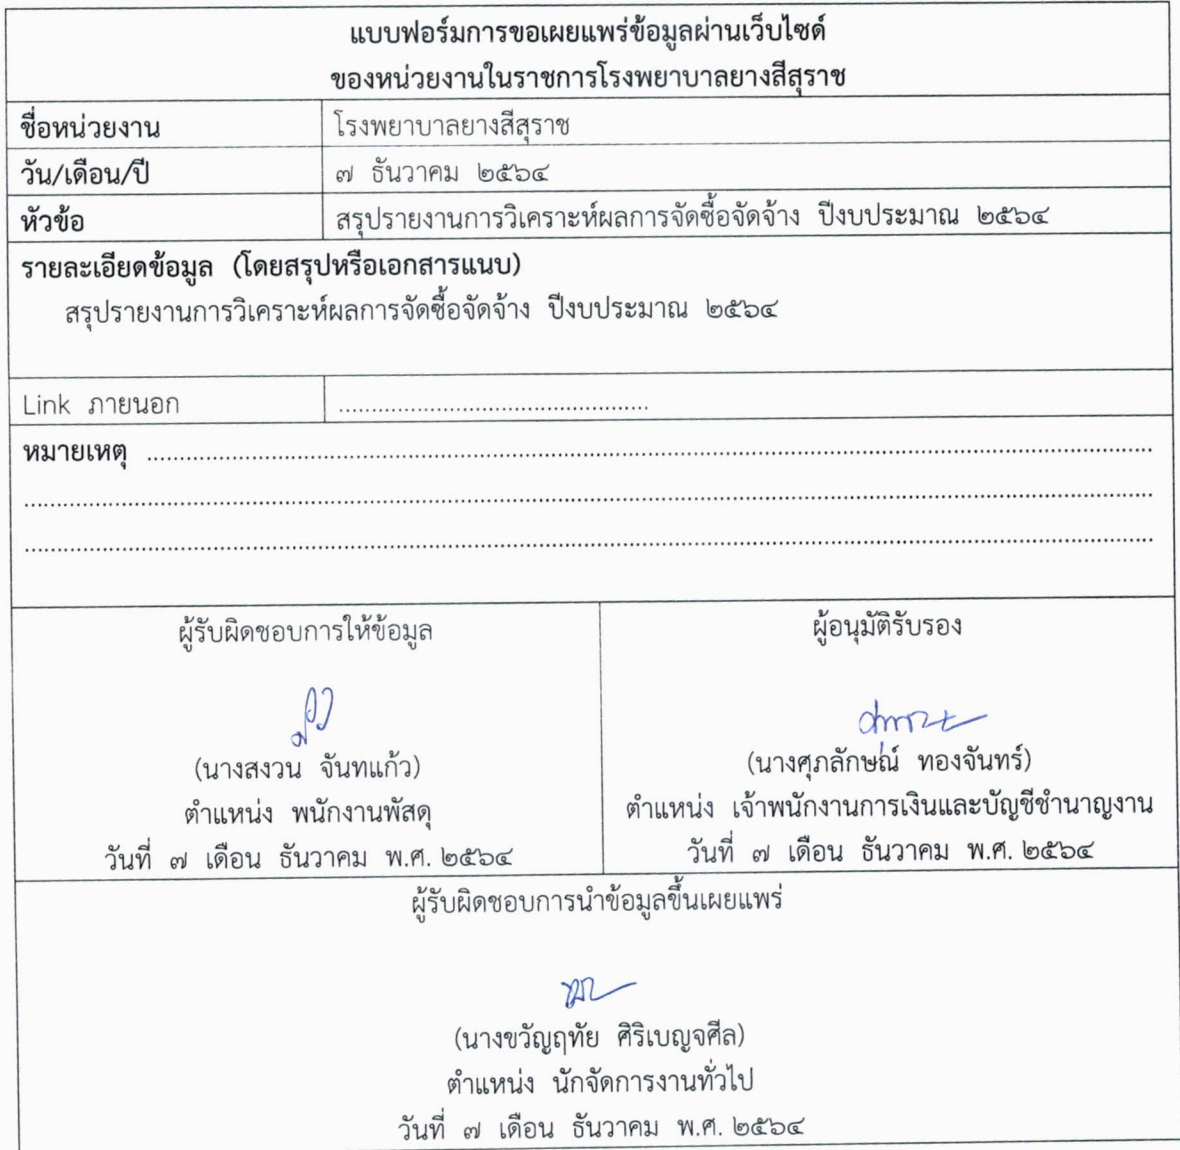 แบบฟอร์มการขอเผยแพร่ข้อมูลผ่านเว็บไซด์
ของหน่วยงานในราชการโรงพยาบาลยางสีสุราช
ชื่อหน่วยงาน โรงพยาบาลยางสีสุราช
วัน/เดือน/ปี ๗ ธันวาคม ๒๕๖๔
หัวข้อ สรุปรายงานการวิเคราะห์ผลการจัดซื้อจัดจ้าง ปีงบประมาณ ๒๕๖๔
รายละเอียดข้อมูล (โดยสรุปหรือเอกสารแนบ)
สรุปรายงานการวิเคราะห์ผลการจัดซื้อจัดจ้าง ปีงบประมาณ ๒๕๖๔
Link ภายนอก ................................................
หมายเหตุ ................................................
ผู้รับผิดชอบการให้ข้อมูล
(นางสงวน จันทแก้ว)
ตำแหน่ง พนักงานพัสดุ
วันที่ ๗ เดือน ธันวาคม พ.ศ. ๒๕๖๔
ผู้อนุมัติรับรอง
(นางศุภลักษณ์ ทองจันทร์)
ตำแหน่ง เจ้าพนักงานการเงินและบัญชีชำนาญงาน
วันที่ ๗ เดือน ธันวาคม พ.ศ. ๒๕๖๔
ผู้รับผิดชอบการนำข้อมูลขึ้นเผยแพร่
(นางขวัญฤทัย ศิริเบญจศีล)
ตำแหน่ง นักจัดการงานทั่วไป
วันที่ ๗ เดือน ธันวาคม พ.ศ. ๒๕๖๔